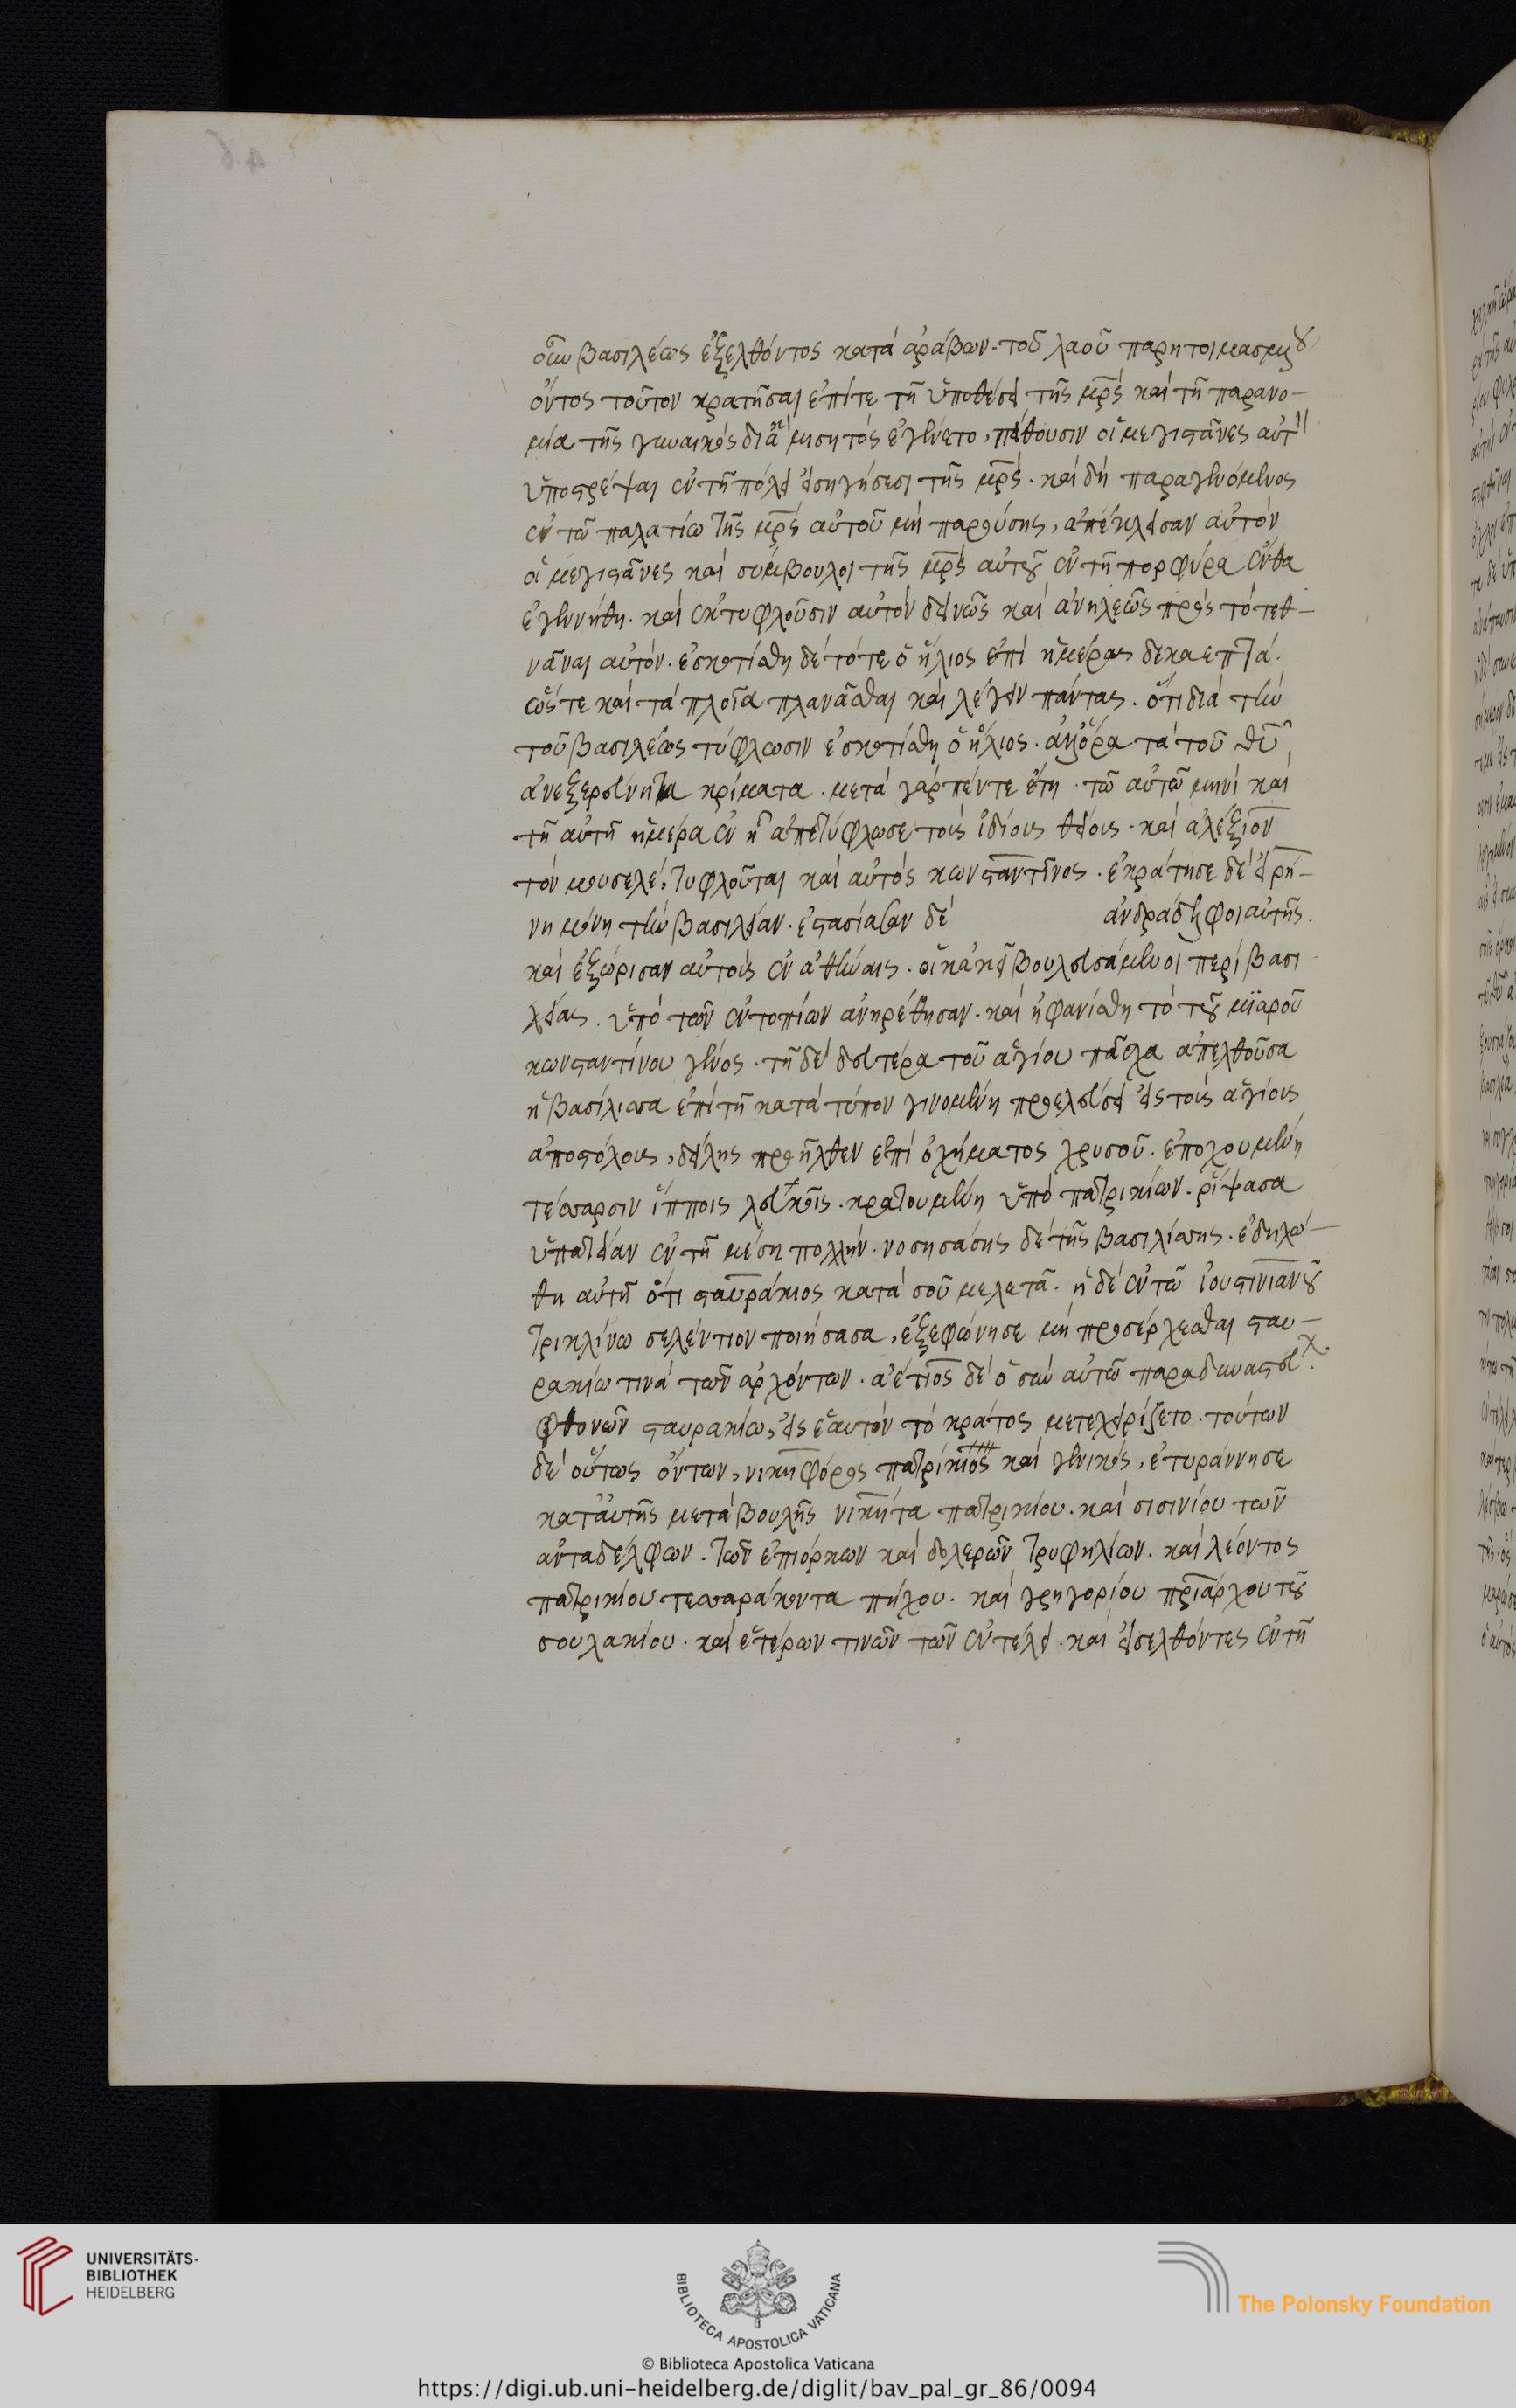 οὖν βασιλέως ἐξελθόντος κατὰ ἀράβων. τοῦ λαοῦ παρητοιμασμένου
ὄντος τοῦτον κρατῆσαι ἐπίτε τῇ ὑποθέσει τῆς μρς καὶ τῇ παρανο-
μία τῆς γυναικὸς διὰ μισητὸς ἐγένετο, πείθουσιν οἱ μεγιστᾶνες αὐτὸν
ὑποστρέψαι ἐν τῇ πόλει εἰσηγήσεσι τῆς μρς. καὶ δὴ παραγενόμενος
ἐν τῶ παλατίω τῆς μρς αὐτοῦ μὴ παρούσης, ἀπέκλεισαν αὐτὸν
οἱ μεγιστᾶνες καὶ σύμβουλοι τῆς μρς αὐτοῦ ἐν τῇ πορφύρα ἔνθα
ἐγεννήθη. καὶ ἐκτυφλοῦσιν αὐτὸν δεινῶς καὶ ἀνηλεῶς πρὸς τὸ τεθ-
νᾶναι αὐτόν. ἐσκοτίσθη δὲ τότε ὁ ἥλιος ἐπὶ ἡμέρας δεκαεπτά.
ὥστε καὶ τὰ πλοῖα πλανᾶσθαι καὶ λέγειν πάντας. ὅτι διὰ τὴν
τοῦ βασιλέως τύφλωσιν ἐσκοτίσθη ὁ ἥλιος. ἀλλ' ὅρα τὰ τοῦ θυ
ἀνεξερεύνητα κρίματα. μετὰ γὰρ πέντε ἔτη. τῶ αὐτῶ μηνὶ καὶ
τῇ αὐτῇ ἡμέρα ἐν ᾗ ἀπετύφλωσε τοὺς ἰδίους θείους. καὶ ἀλέξιον
τὸν μουσελέ, τυφλοῦται καὶ αὐτὸς κωνσταντῖνος. ἐκράτησε δὲ εἰρή-
νη μόνη τὴν βασιλείαν. ἐστασίασαν δὲ ἀνδράδελφοι αὐτῆς.
καὶ ἐξώρισαν αὐτοὺς ἐν ἀθήναις. οἳ κἀκεῖ βουλευσάμενοι περὶ βασι
λείας. ὑπὸ τῶν ἐντοπίων ἀνηρέθησαν. καὶ ἠφανίσθη τὸ τοῦ μϊαροῦ
κωνσταντίνου γένος. τῇ δὲ δευτέρα τοῦ ἁγίου πάσχα ἀπελθοῦσα
ἡ βασίλισσα ἐπὶ τῇ κατὰ τύπον γινομένη προελεύσει εἰς τοὺς ἁγίους
ἀποστόλους, δείλης προῆλθεν ἐπὶ ὀχήματος χρυσοῦ. ἐποχουμένη
τέσσαρσιν ἵπποις λευκοῖς. κρατουμένη ὑπὸ πατρικίων. ῥίψασα
ὑπατείαν ἐν τῇ μέση πολλήν. νοσησάσης δὲ τῆς βασιλίσσης. ἐδηλώ-
θη αὐτῇ ὅτι σταυράκιος κατὰ σοῦ μελετᾶ. ἡ δὲ ἐν τῶ ἰουστινιανοῦ
τρικλίνω σελέντιον ποιήσασα, ἐξεφώνησε μὴ προσέρχεσθαι σταυ-
ρακίω τινὰ τῶν ἀρχόντων. ἀέτιος δὲ ὁ σὺν αὐτῶ παραδυναστεύων.
φθονῶν σταυρακίω, εἰς ἑαυτὸν τὸ κράτος μετεχειρίζετο. τούτων
δὲ οὕτως ὄντων, νικηφόρος πατρίκιος καὶ γενικὸς, ἐτυράννησε
κατ' αὐτῆς μετὰ βουλῆς νικήτα πατρικίου. καὶ σισινίου τῶν
αὐταδέλφων. τῶν ἐπιόρκων καὶ δολερῶν τρυφηλίων. καὶ λέοντος
πατρικίου τεσσαράκοντα πήχου. καὶ γρηγορίου πριάρχου τοῦ
σουλακίου. καὶ ἑτέρων τινῶν τῶν ἐν τέλει. καὶ εἰσελθόντες ἐν τῇ
UNIVERSITÄTS-
BIBLIOTHEK
HEIDELBERG
BIBLIOTECA APOSTOLICA VATICANA
The Polonsky Foundation
© Biblioteca Apostolica Vaticana
https://digi.ub.uni-heidelberg.de/diglit/bav_pal_gr_86/0094